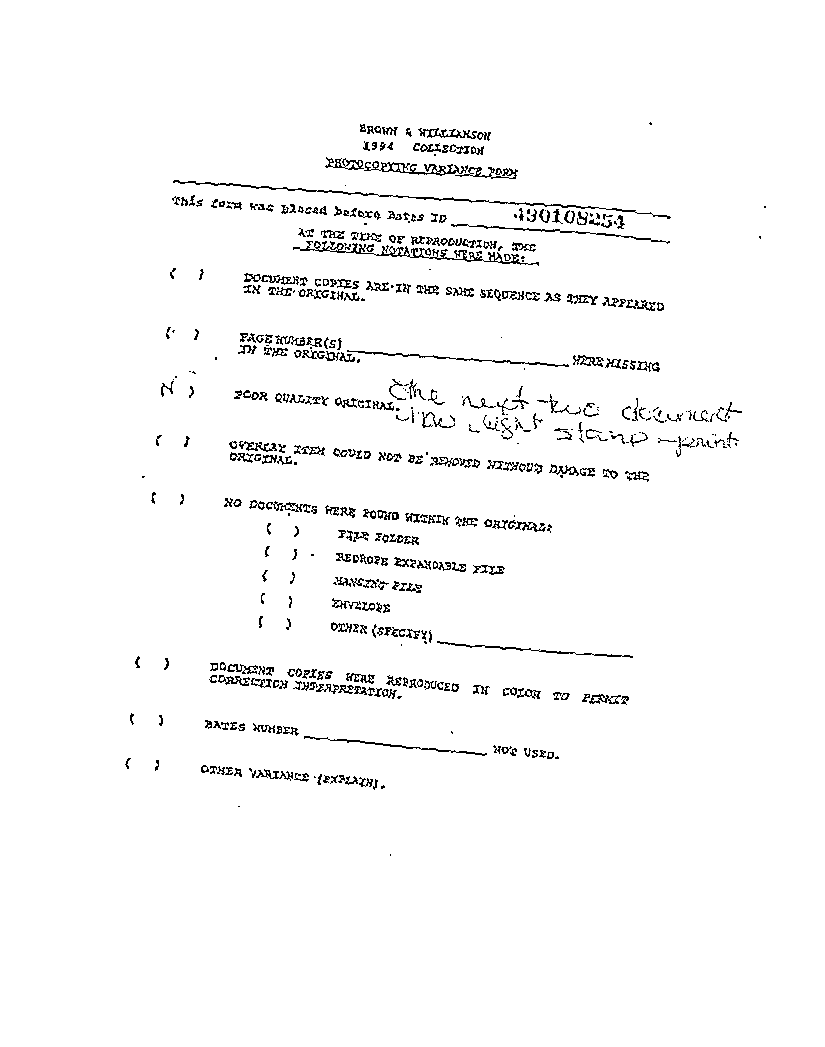 BROWN & WILLIAMSON
1994 COLLECTION
PHOTOCOPYING VARIANCE FORM
This form was placed before Bates ID 490108254
AT THE TIME OF REPRODUCTION, THE
FOLLOWING NOTATIONS WERE MADE:
( ) DOCUMENT COPIES ARE IN THE SAME SEQUENCE AS THEY APPEARED
IN THE ORIGINAL.
( ) PAGE NUMBER(S) ____ WERE MISSING
IN THE ORIGINAL.
( ) POOR QUALITY ORIGINAL. The next two document
light stamp print
( ) OVERLAY ITEM COULD NOT BE REMOVED WITHOUT DAMAGE TO THE
ORIGINAL.
( ) NO DOCUMENTS WERE FOUND WITHIN THE ORIGINAL:
( ) FILE FOLDER
( ) REDROPE EXPANDABLE FILE
( ) HANGING FILE
( ) ENVELOPE
( ) OTHER (SPECIFY) ____
( ) DOCUMENT COPIES WERE REPRODUCED IN COLOR TO PERMIT
CORRECTION INTERPRETATION.
( ) BATES NUMBER ____ NOT USED.
( ) OTHER VARIANCE (EXPLAIN).